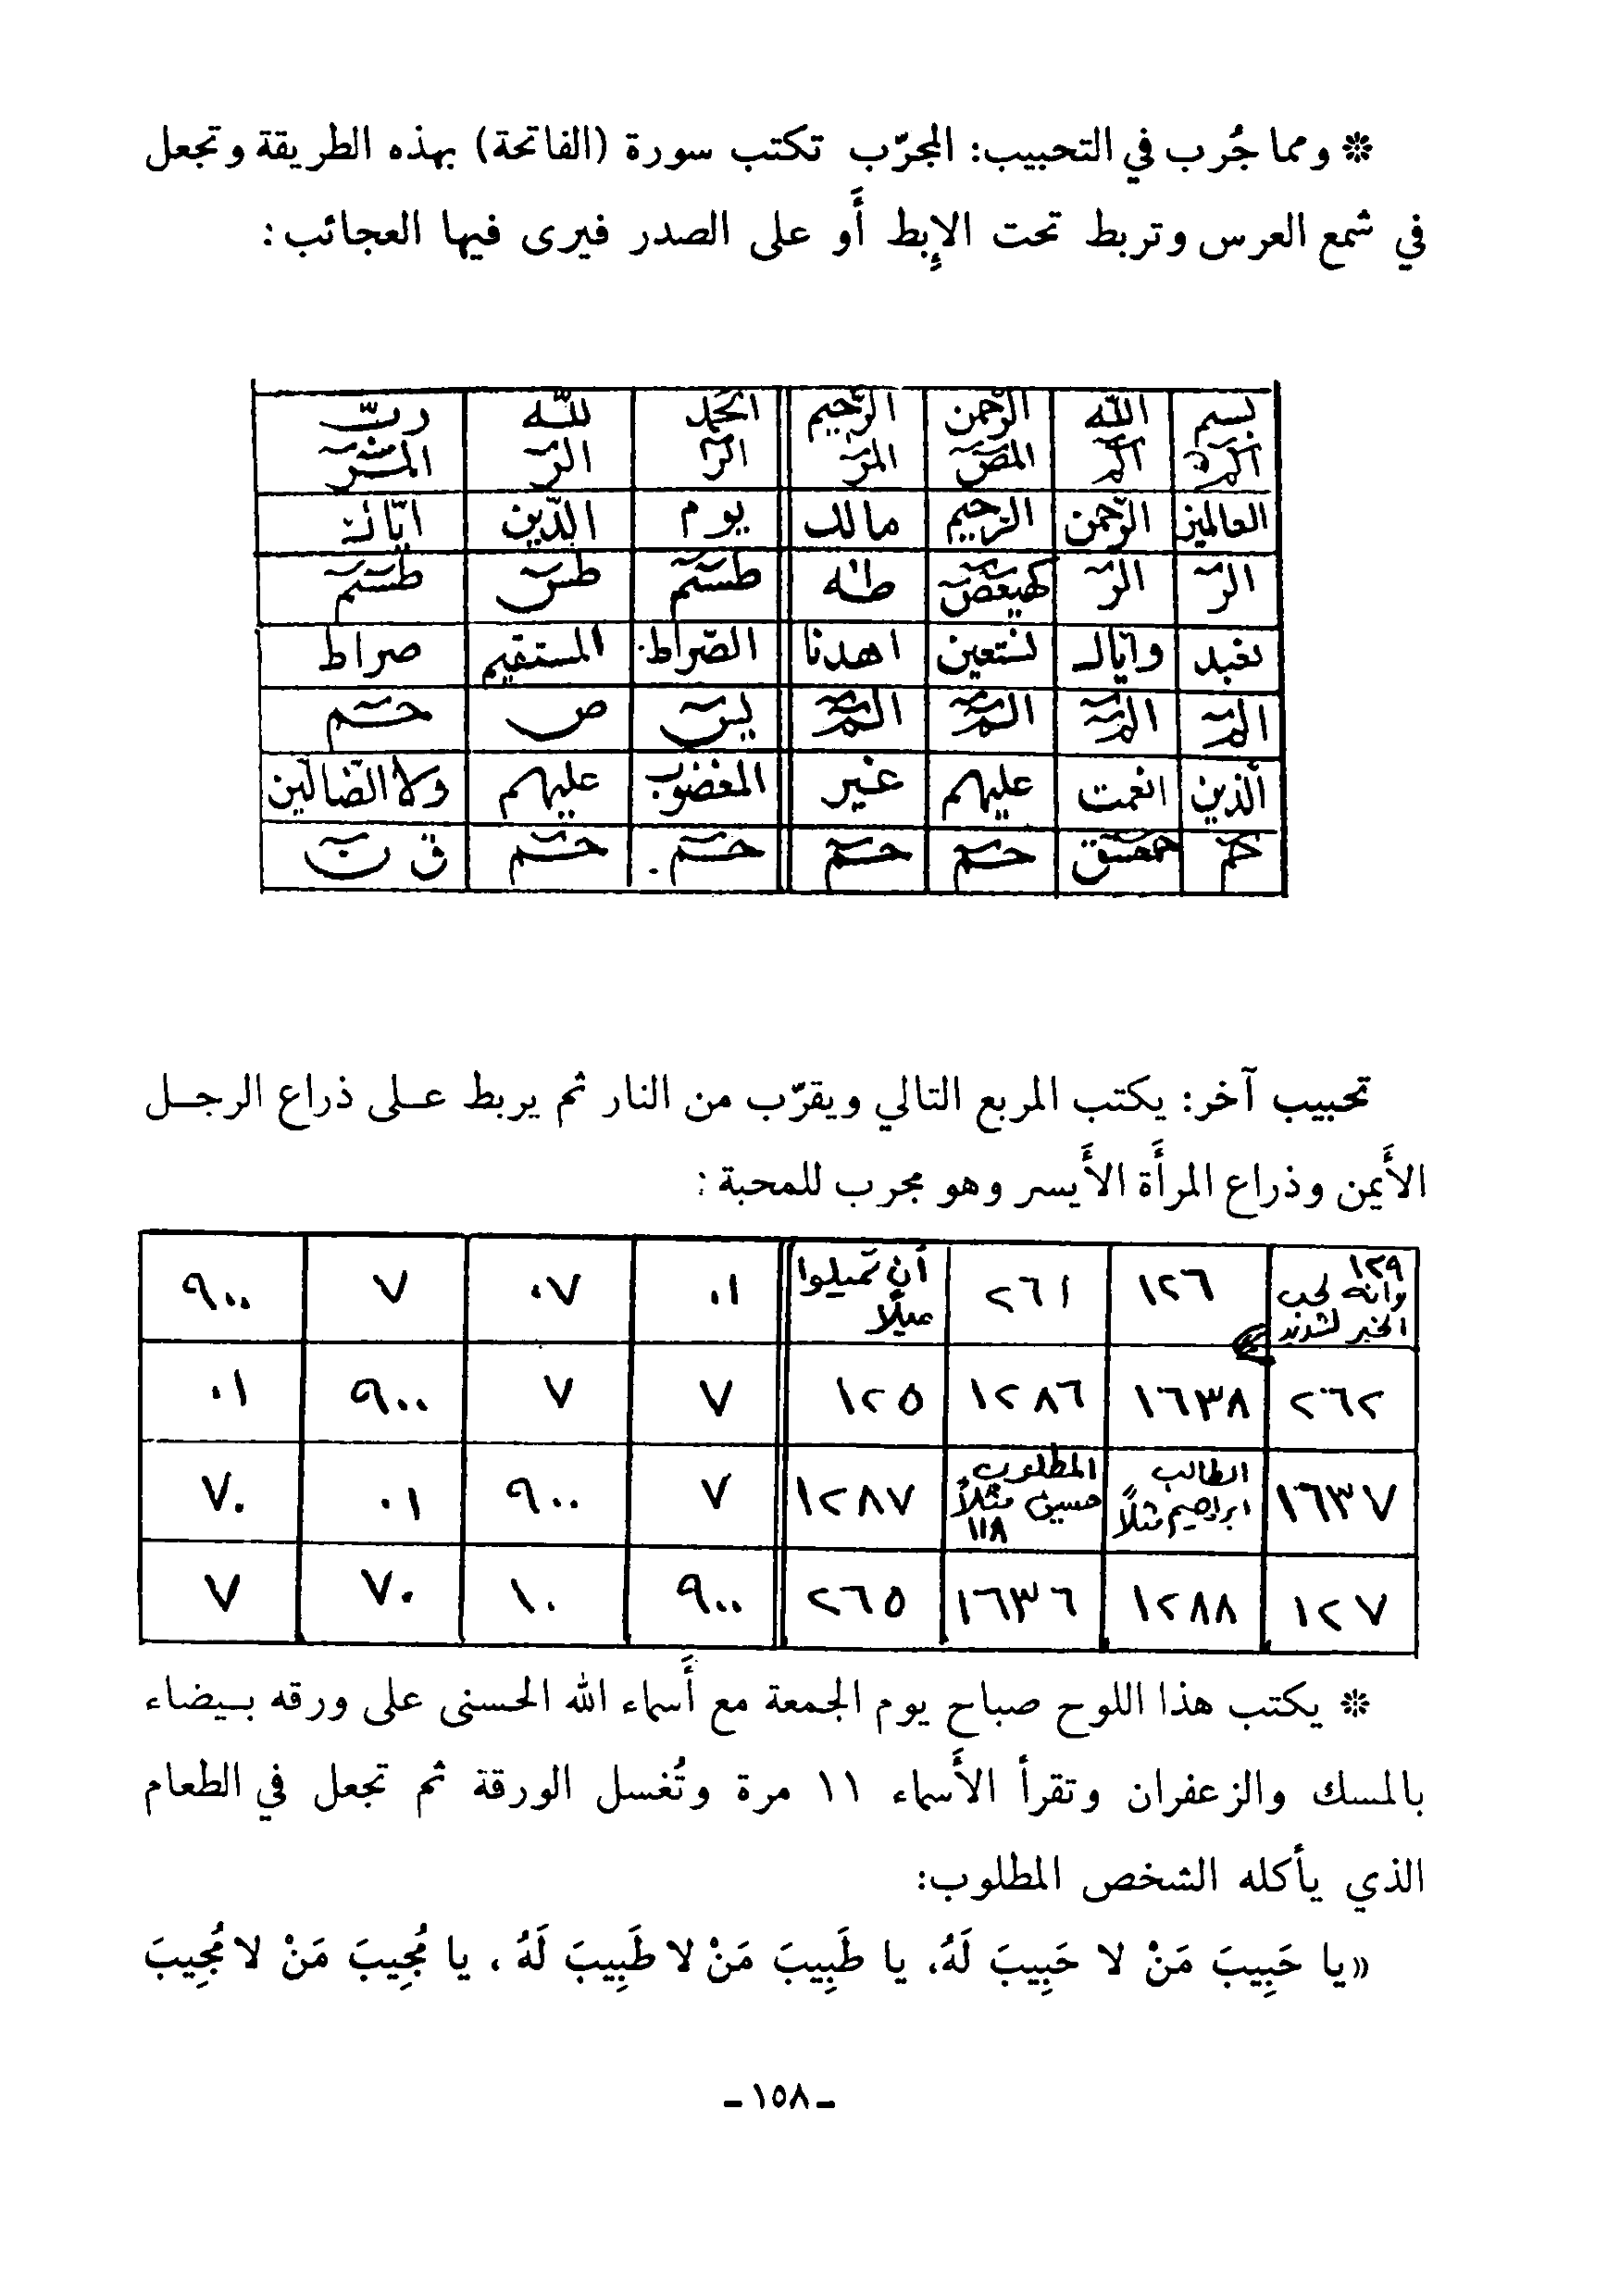 ❊ ومما جُرب في التحبيب: المجرّب تكتب سورة (الفاتحة) بهذه الطريقة وتجعل
في شمع العرس وتربط تحت الإِبط أَو على الصدر فيرى فيها العجائب:
بسم الله الرّحمن الرّحيم الحمد للّه ربّ
الۤمۤصۤ الۤمۤرۤ الۤرۤ الۤرۤ
العالمين الرّحمن الرّحيم مالك يوم الدّين ايّاك
الۤرۤ الۤرۤ كۤهيعۤصۤ طٰه طسۤمۤ طسۤ طسۤمۤ
نعبد وايّاك نستعين اهدنا الصّراط المستقيم صراط
الۤمۤ الۤمۤ الۤمۤ الۤمۤ يسۤ ص حۤمۤ
الّذين انعمت عليهم غير المغضوب عليهم ولا الضّالّين
حۤمۤ حمۤعۤسۤقۤ حۤمۤ حۤمۤ حۤمۤ حۤمۤ ق نۤ
تحبيب آخر: يكتب المربع التالي ويقرّب من النار ثم يربط عـلى ذراع الرجـل
الأَيمن وذراع المرأَة الأَيسر وهو مجرب للمحبة:
١٢٩
وانه لحب
الخير لشديد
١٢٦ ٢٦١ أن تميلوا
ميلاً
٠١ ٠٧ ٧ ٩٠٠
٢٦٢ ١٦٣٨ ١٢٨٦ ١٢٥ ٧ ٧ ٩٠٠ ٠١
١٦٣٧ الطالب
ابراهيم مثلاً
المطلوب
حسين مثلاً
١١٨
١٢٨٧ ٧ ٩٠٠ ٠١ ٧٠
١٢٧ ١٢٨٨ ١٦٣٦ ٢٦٥ ٩٠٠ ١٠ ٧٠ ٧
❊ يكتب هذا اللوح صباح يوم الجمعة مع أَسماء الله الحسنى على ورقه بـيضاء
بالمسك والزعفران وتقرأ الأَسماء ١١ مرة وتُغسل الورقة ثم تجعل في الطعام
الذي يأكله الشخص المطلوب:
«يا حَبِيبَ مَنْ لا حَبِيبَ لَهُ، يا طَبِيبَ مَنْ لا طَبِيبَ لَهُ، يا مُجِيبَ مَنْ لا مُجِيبَ
ـ ١٥٨ ـ